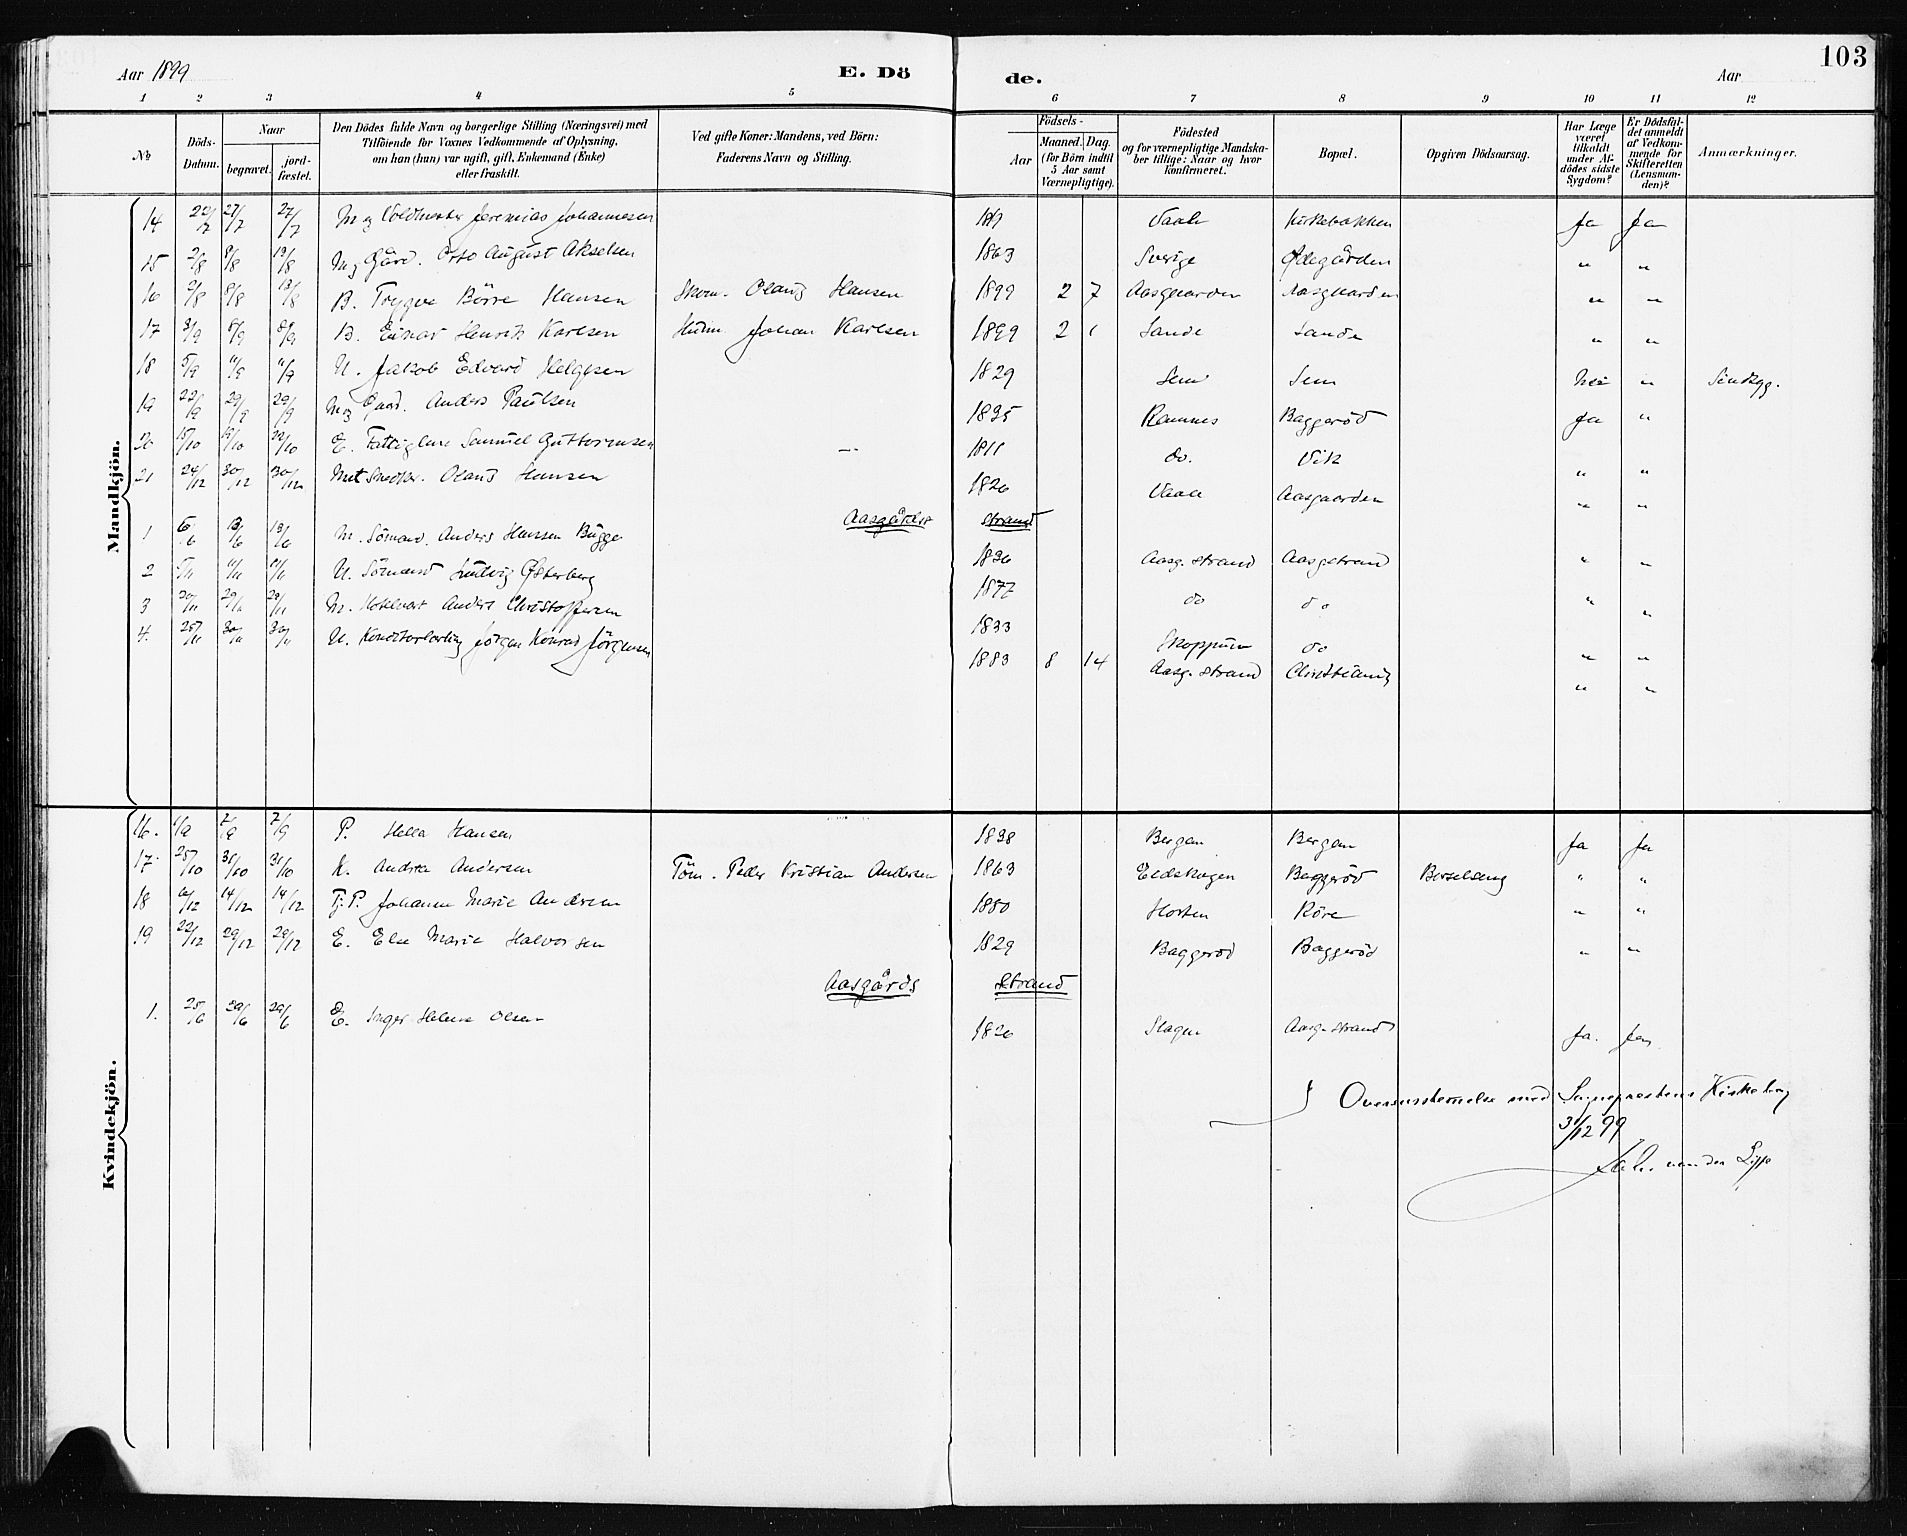 103
Aar 1899
E. Dö
de.
Aar
1 2 3 4 5 6 7 8 9 10 11 12
No
Döds-Datum.
Naar
begravet.
jord-fæstet.
Den Dödes fulde Navn og borgerlige Stilling (Næringsvei) med Tilföiende for Voxnes Vedkommende af Oplysning, om han (hun) var ugift, gift, Enkemand (Enke) eller fraskilt.
Ved gifte Koner: Mandens, ved Börn: Faderens Navn og Stilling.
Födsels-
Aar
Maaned. Dag. (for Börn indtil 5 Aar samt Værnepligtige).
Födested og for værnepligtige Mandska-ber tillige: Naar og hvor konfirmeret.
Bopæl.
Opgiven Dödsaarsag.
Har Læge været tilkaldt under Af-dödes sidste Sygdom?
Er Dödsfal-det anmeldt af Vedkom-mende for Skifteretten (Lensmanden)?
Anmærkninger.
Mandkjön.
14 22/7 27/7 27/7 Jeremias Johannesen Vaale Kirkebakken Ja Ja
15 2/8 8/8 13/8 Gård. Otto August Akselsen 1863 Sverige Ødegården " "
16 2/8 8/8 13/8 B. Trygve Börre Hansen Skom. Olaus Hansen 1899 2 7 Aasgaarden Aasgaarden " "
17 3/9 8/9 8/9 B. Einar Henrik Karlsen Husm. Johan Karlsen 1899 2 1 Sande Sande " "
18 5/9 11/9 11/9 U. Jakob Edvard Helgesen 1829 Sem Sem Nei " Sindsyg.
19 22/9 29/9 29/9 Gaard. Anders Paulsen 1835 Ramnes Baggeröd Ja "
20 15/10 22/10 E. Fattiglem Samuel Guttormsen — 1811 do. Vik " "
21 24/12 30/12 30/12 Snedker. Olaus Hansen 1826 Vaale Aasgaarden " "
Aasgårdsstrand
1 6/6 13/6 13/6 M. Sömand. Anders Hansen Bugge 1836 Aasg. strand Aasgstrand " "
2 5/11 11/11 11/11 U. Sömand Ludvig Østerberg 1877 do do " "
3 29/11 29/11 M. Anders Christophersen 1833 Skoppum do " "
4. 25/11 30/11 30/11 U. Konditorlærling Jörgen Konrad Jörgensen 1883 8 14 Aasg. strand Christiania " "
Kvindekjön.
16. 1/9 7/9 7/9 P. Hella Hansen 1838 Bergan Bergan Ja Ja
17 25/10 31/10 31/10 K. Andrea Andersen Töm. Peder Kristian Andersen 1863 Eidskogen Baggeröd Barselseng " "
18 6/12 14/12 14/12 Tj. P. Johanne Marie Andersen 1880 Horten Röre " "
19 22/12 29/12 29/12 E. Else Marie Halvorsen 1829 Baggeröd Baggeröd " "
Aasgårds strand
1. 25/6 29/6 29/6 E. Inger Helene Olsen 1826 Slagen Aasg. strand Ja. Ja
I Overensstemmelse med Sognepræstens Kirkebog
31/12 99
van der Lippe